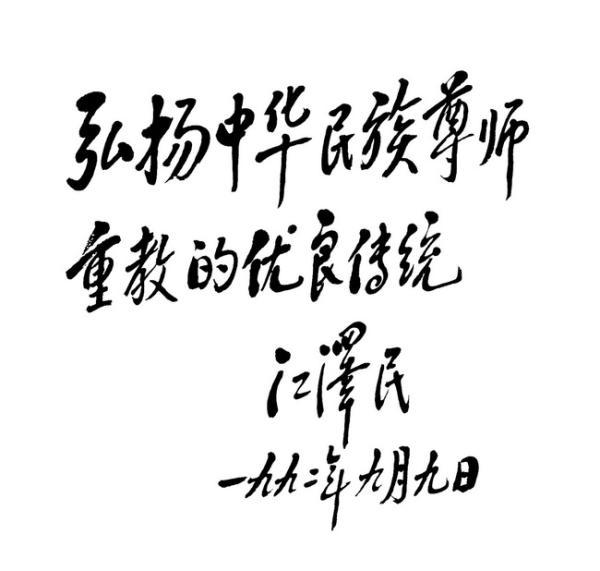 弘扬中华民族尊师
重教的优良传统
江澤民
一九九二年九月九日